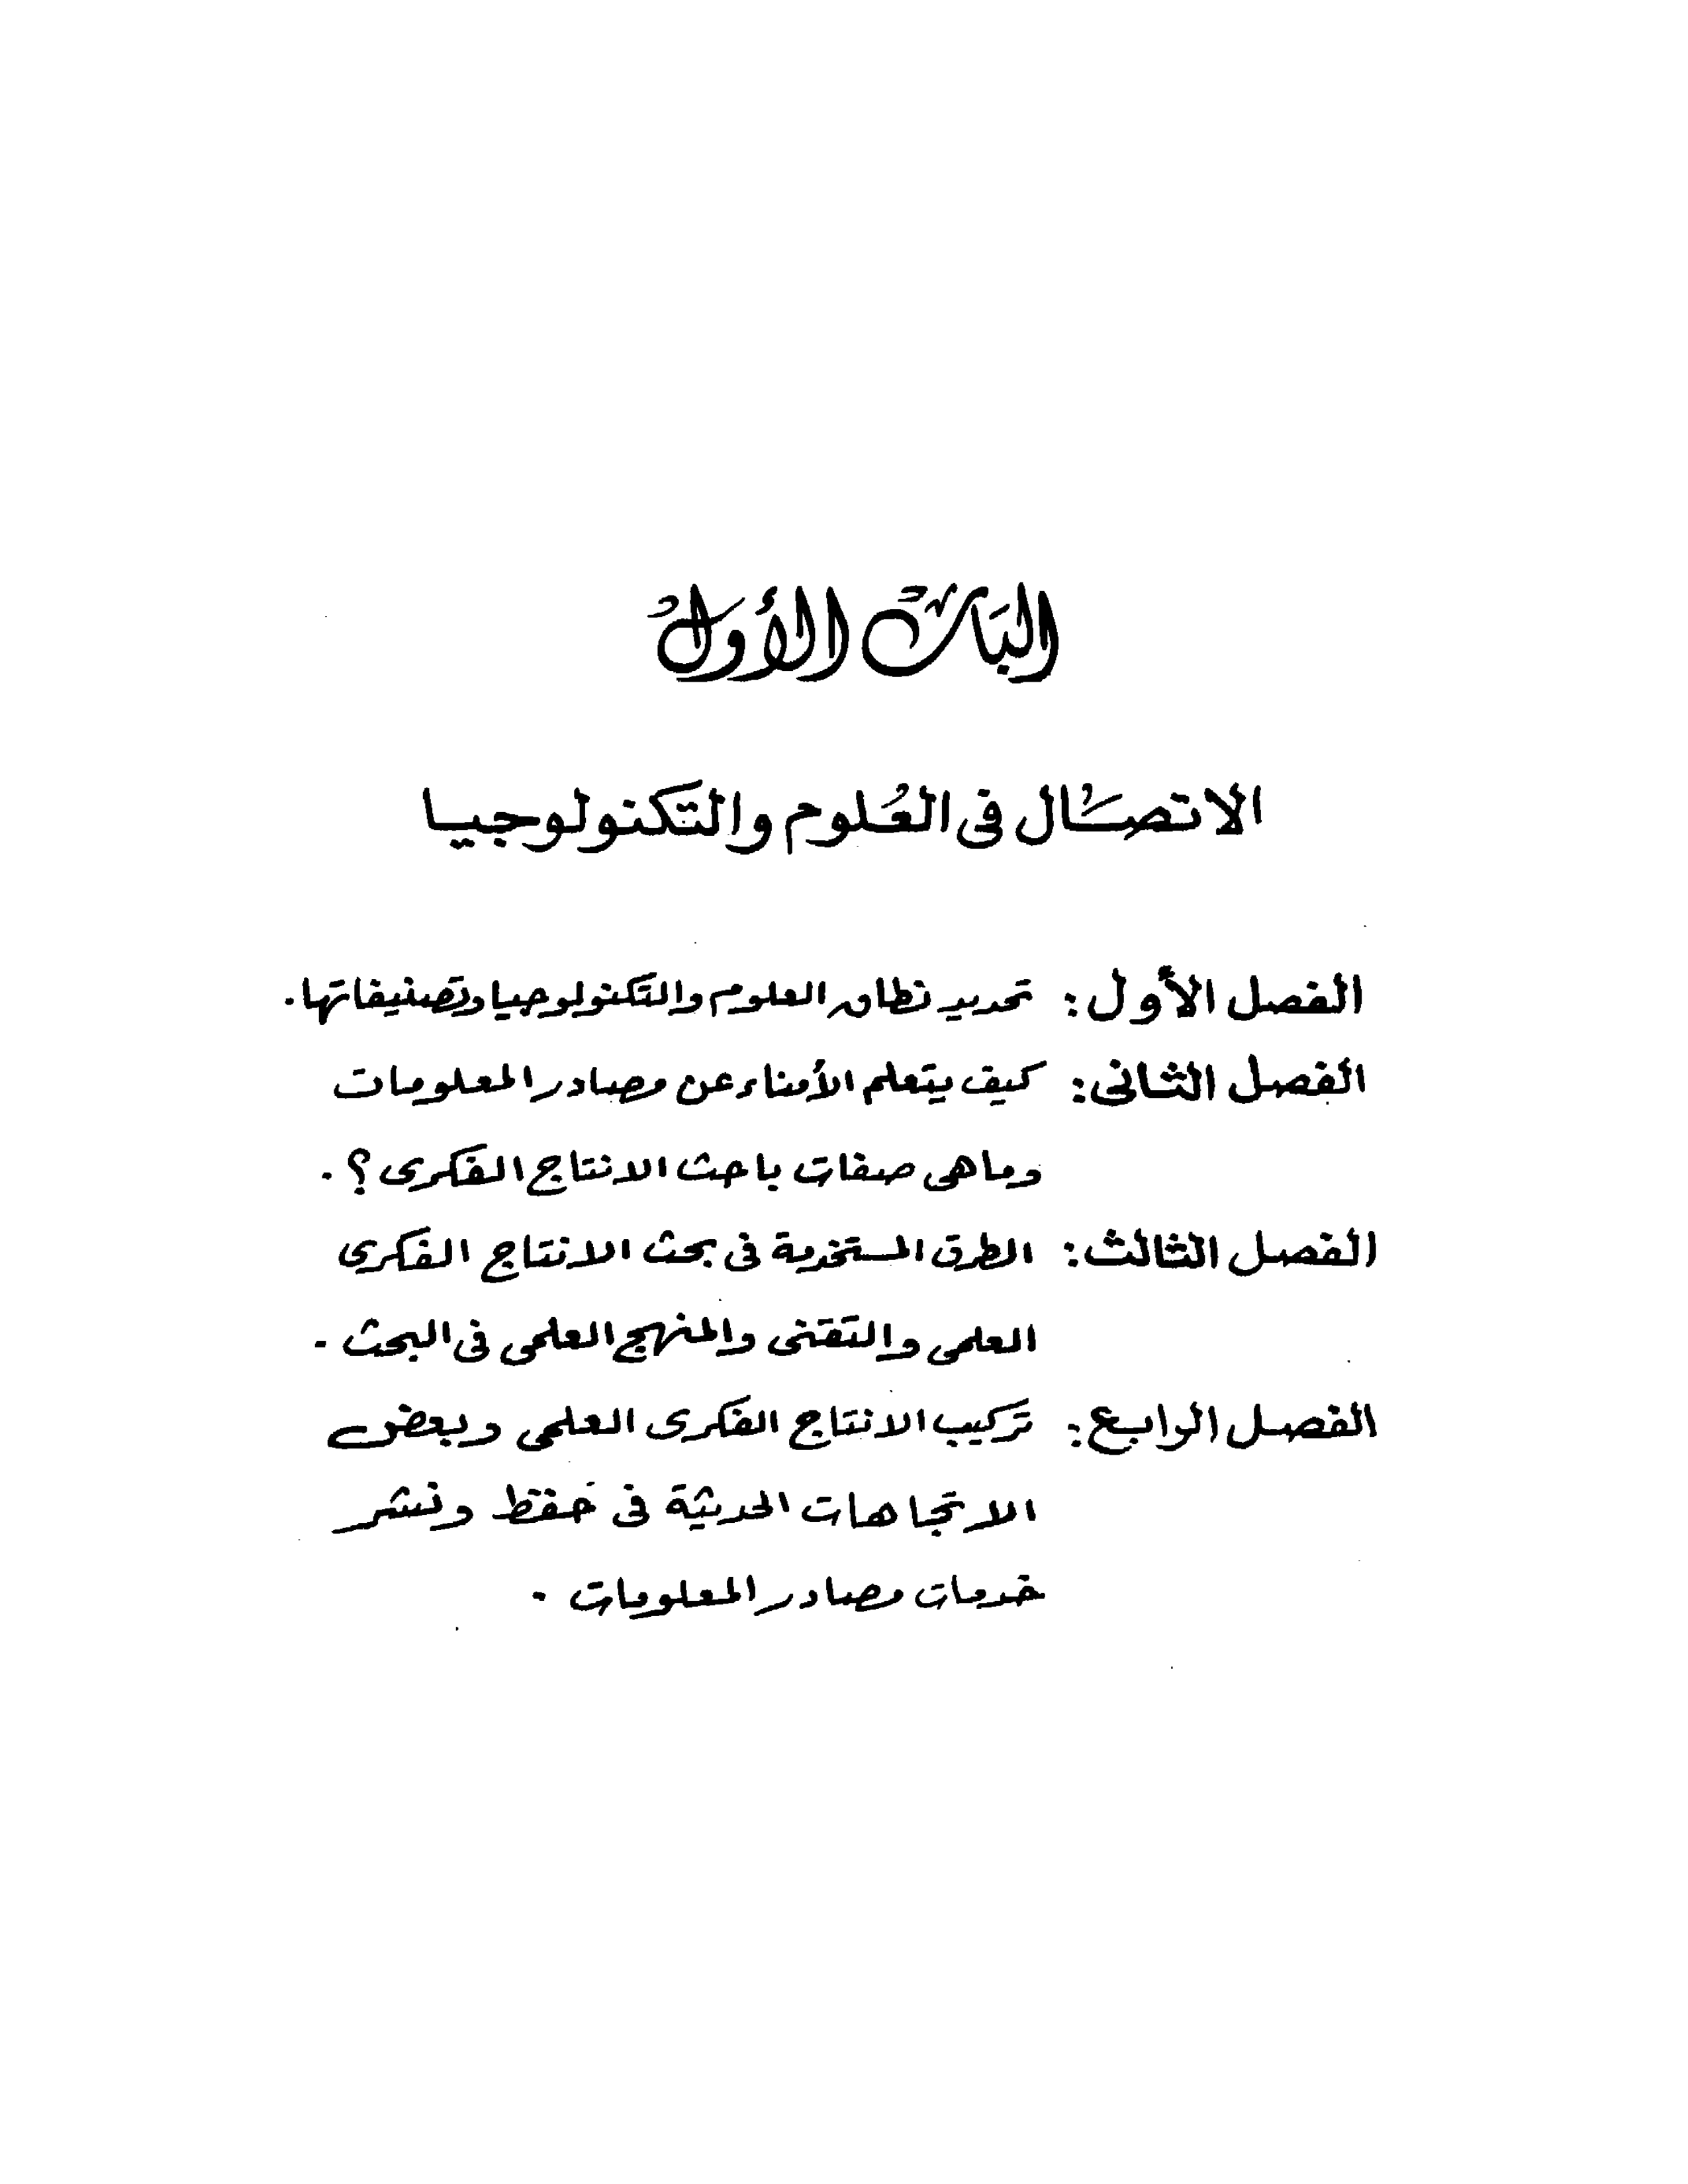 الباب الأول
الاتصال فى العلوم والتكنولوجيا
الفصل الأول: تحديد نطاق العلوم والتكنولوجيا وتصنيفاتها.
الفصل الثانى: كيف يتعلم الأمناء عن مصادر المعلومات
وماهى صفات باحث الانتاج الفكرى؟.
الفصل الثالث: الطرق المستخدمة فى بحث الانتاج الفكرى
العلمى والتقنى والمنهج العلمى فى البحث.
الفصل الرابع: تركيب الانتاج الفكرى العلمى وبعض
الاتجاهات الحديثة فى حفظ ونشر
خدمات مصادر المعلومات.